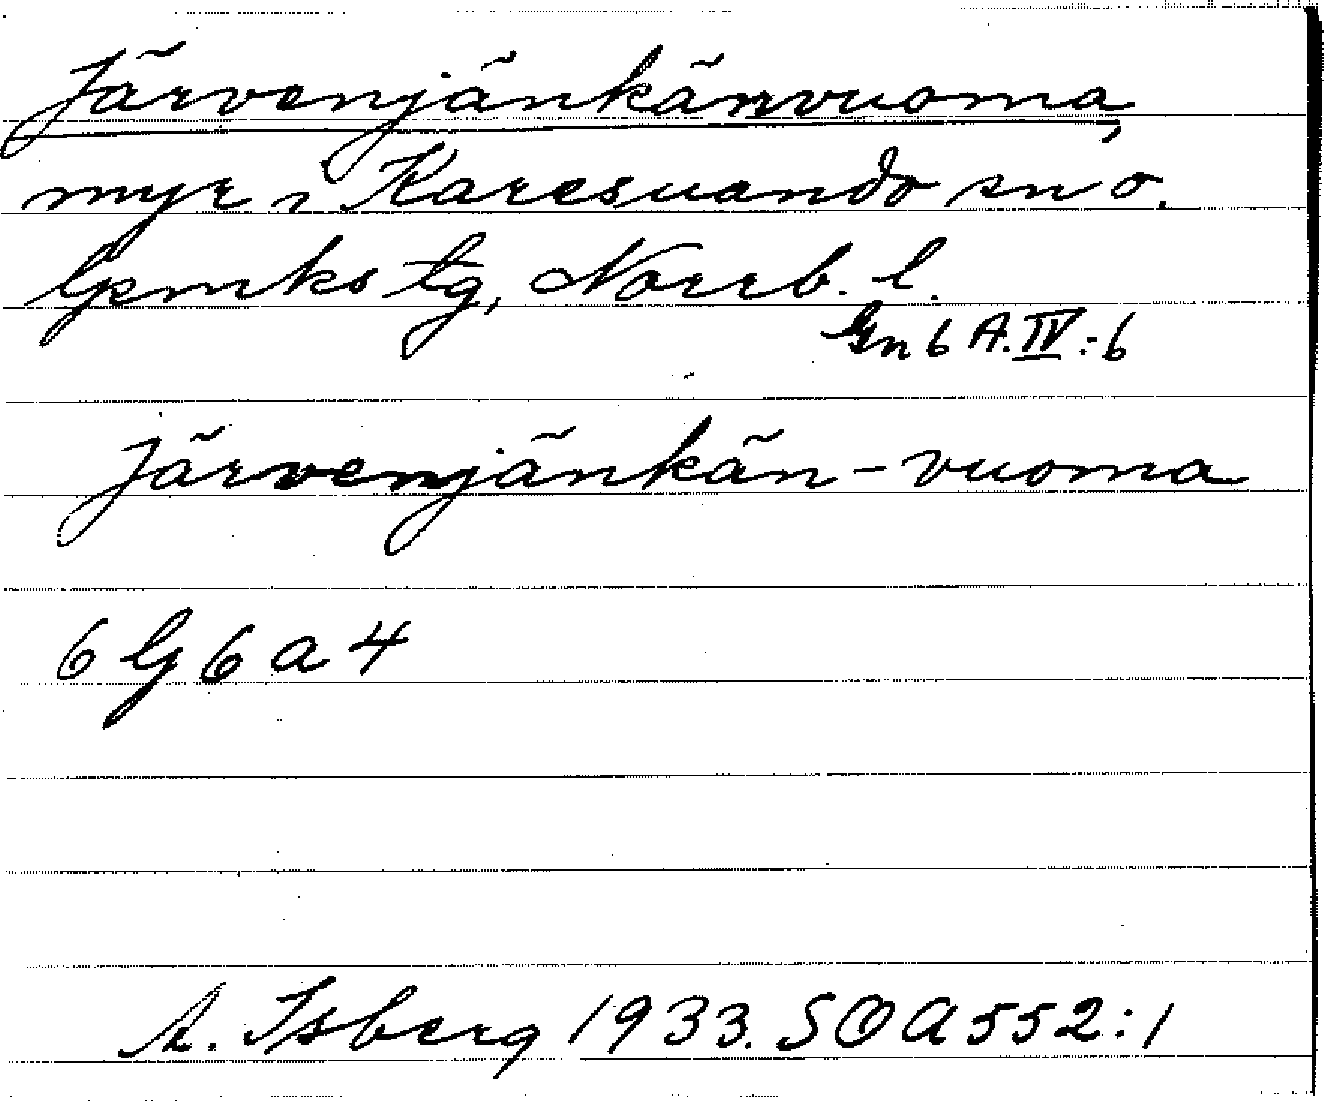 Järvenjänkänvuoma,
myr i Karesuando sn o.
lpmks tg, Norrb. l.
Gn 6 A.IV:6
Järvenjänkän-vuoma
6 G 6 a 4
A. Isberg 1933. SOA 552:1